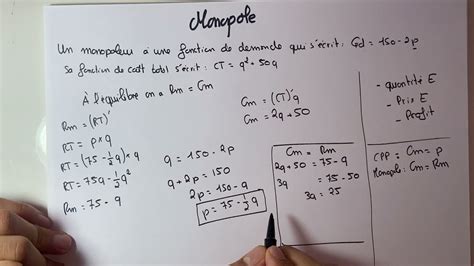 Monopole
Un monopoleur a une fonction de demande qui s'écrit : Qd = 150 - 2p
Sa fonction de coût total s'écrit : CT = q² + 50q
À l'équilibre on a Rm = Cm
Rm = (RT)'
RT = p × q
RT = (75 - 1/2 q) × q
RT = 75q - 1/2 q²
Rm = 75 - q
q = 150 - 2p
q + 2p = 150
2p = 150 - q
p = 75 - 1/2 q
Cm = (CT)'q
Cm = 2q + 50
Cm = Rm
2q + 50 = 75 - q
3q = 75 - 50
3q = 25
- quantité E
- Prix E
- Profit
CPP : Cm = p
Monopole : Cm = Rm